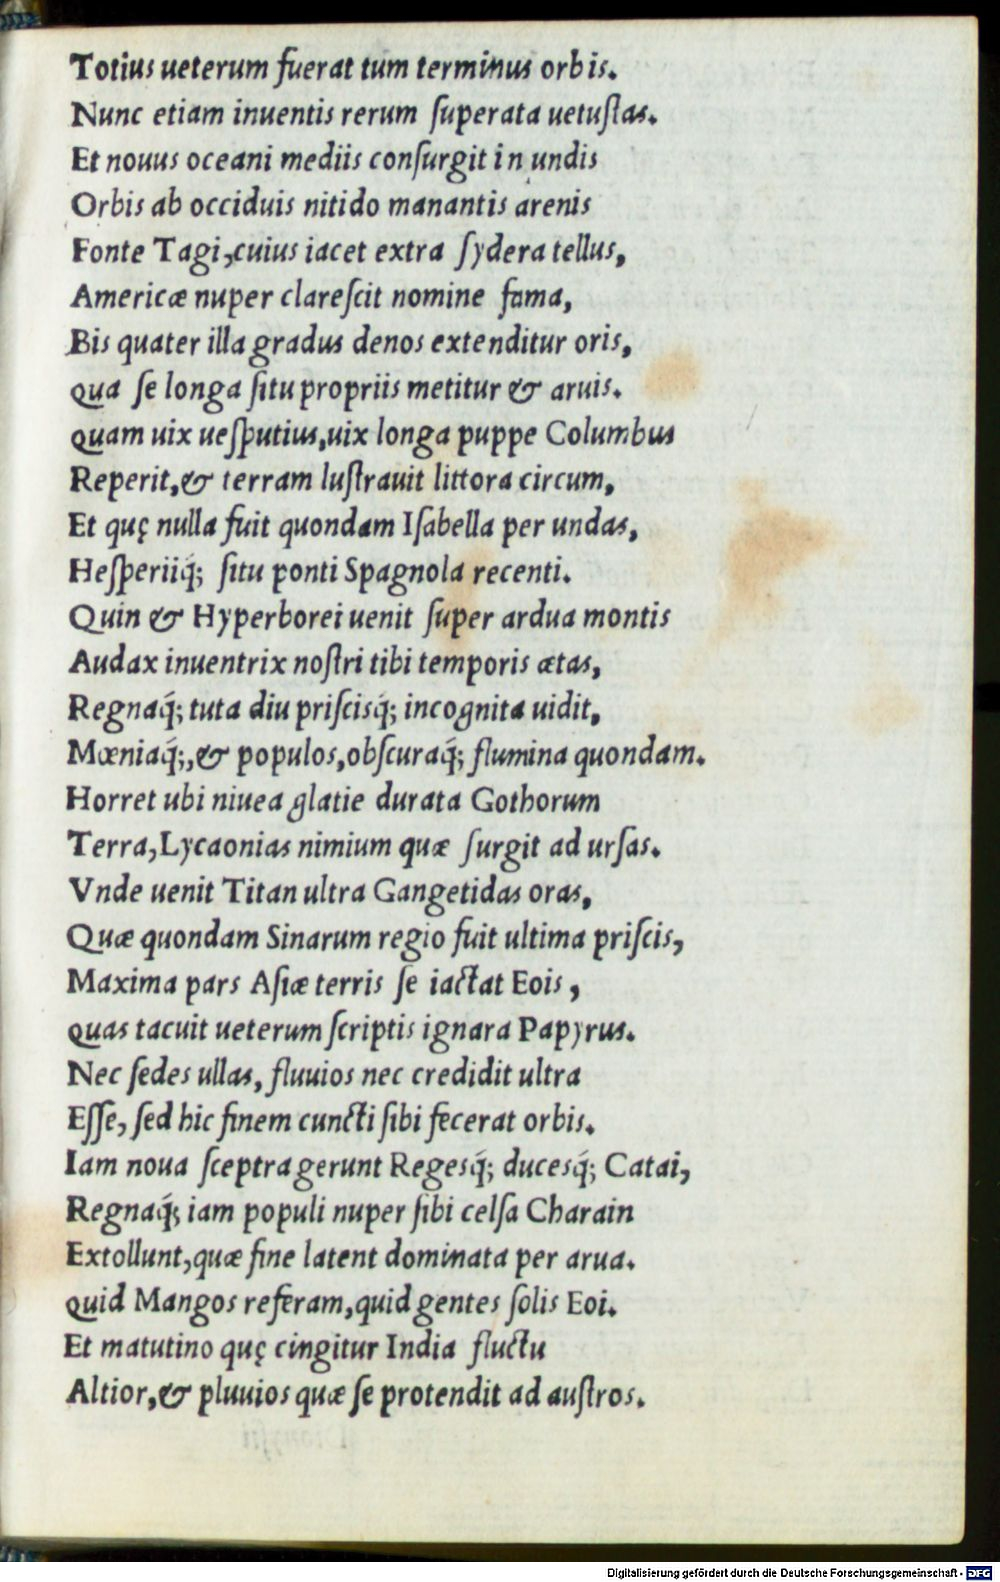 Totius ueterum fuerat tum terminus orbis.
Nunc etiam inuentis rerum ſuperata uetuſtas.
Et nouus oceani mediis conſurgit in undis
Orbis ab occiduis nitido manantis arenis
Fonte Tagi,cuius iacet extra ſydera tellus,
Americæ nuper clareſcit nomine fama,
Bis quater illa gradus denos extenditur oris,
qua ſe longa ſitu propriis metitur & aruis.
quam uix ueſputius,uix longa puppe Columbus
Reperit,& terram luſtrauit littora circum,
Et quę nulla fuit quondam Iſabella per undas,
Heſperiiq́; ſitu ponti Spagnola recenti.
Quin & Hyperborei uenit ſuper ardua montis
Audax inuentrix noſtri tibi temporis ætas,
Regnaq́; tuta diu priſcisq́; incognita uidit,
Mœniaq́;,& populos,obſcuraq́; flumina quondam.
Horret ubi niuea glatie durata Gothorum
Terra,Lycaonias nimium quæ ſurgit ad urſas.
Vnde uenit Titan ultra Gangetidas oras,
Quæ quondam Sinarum regio fuit ultima priſcis,
Maxima pars Aſiæ terris ſe iactat Eois,
quas tacuit ueterum ſcriptis ignara Papyrus.
Nec ſedes ullas, fluuios nec credidit ultra
Eſſe, ſed hic finem cuncti ſibi fecerat orbis.
Iam noua ſceptra gerunt Regesq́; ducesq́; Catai,
Regnaq́; iam populi nuper ſibi celſa Charain
Extollunt,quæ fine latent dominata per arua.
quid Mangos referam,quid gentes ſolis Eoi.
Et matutino quę cingitur India fluctu
Altior,& pluuios quæ ſe protendit ad auſtros.
Digitalisierung gefördert durch die Deutsche Forschungsgemeinschaft - DFG